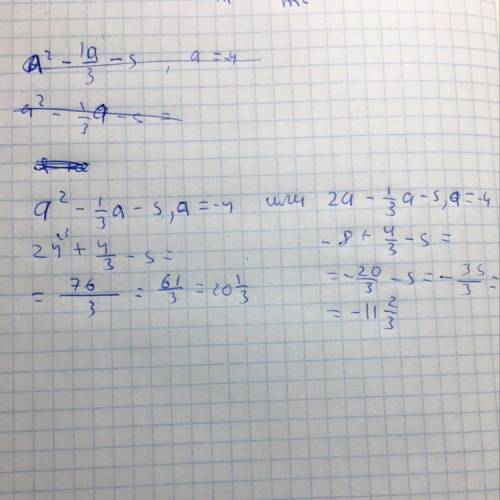 a² - 1a/3 - 5, a = -4
a² - 1/3 a - 5 =
a² - 1/3 a - 5, a = -4 или 2a - 1/3 a - 5, a = -4
24 + 4/3 - 5 = - 8 + 4/3 - 5 =
= 76/3 = 61/3 = 20 1/3 = - 20/3 - 5 = - 35/3 =
= - 11 2/3